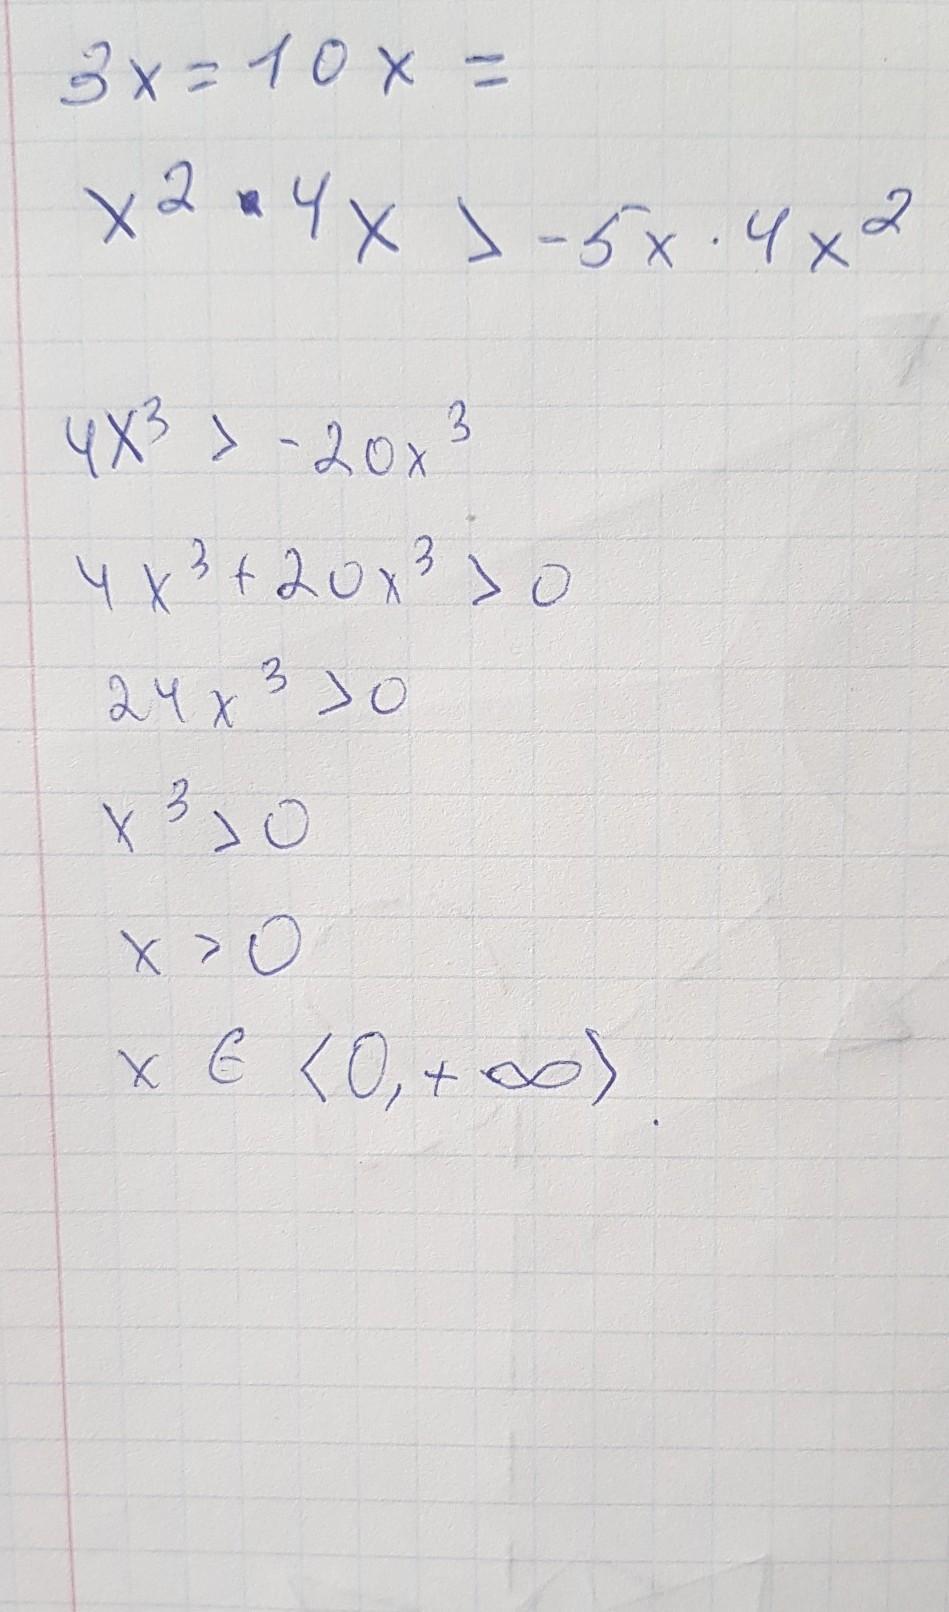 3x = 10x =
x² · 4x > -5x · 4x²
4x³ > -20x³
4x³ + 20x³ > 0
24x³ > 0
x³ > 0
x > 0
x ∈ ⟨0, +∞⟩.